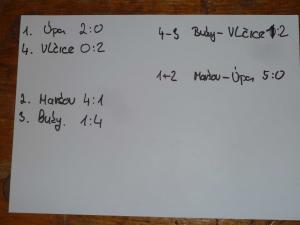 1. Úpa 2:0
4. Vlčice 0:2
2. Maršov 4:1
3. Bužy. 1:4
4-3 Bužy - Vlčice :2
1-2 Maršov - Úpa 5:0